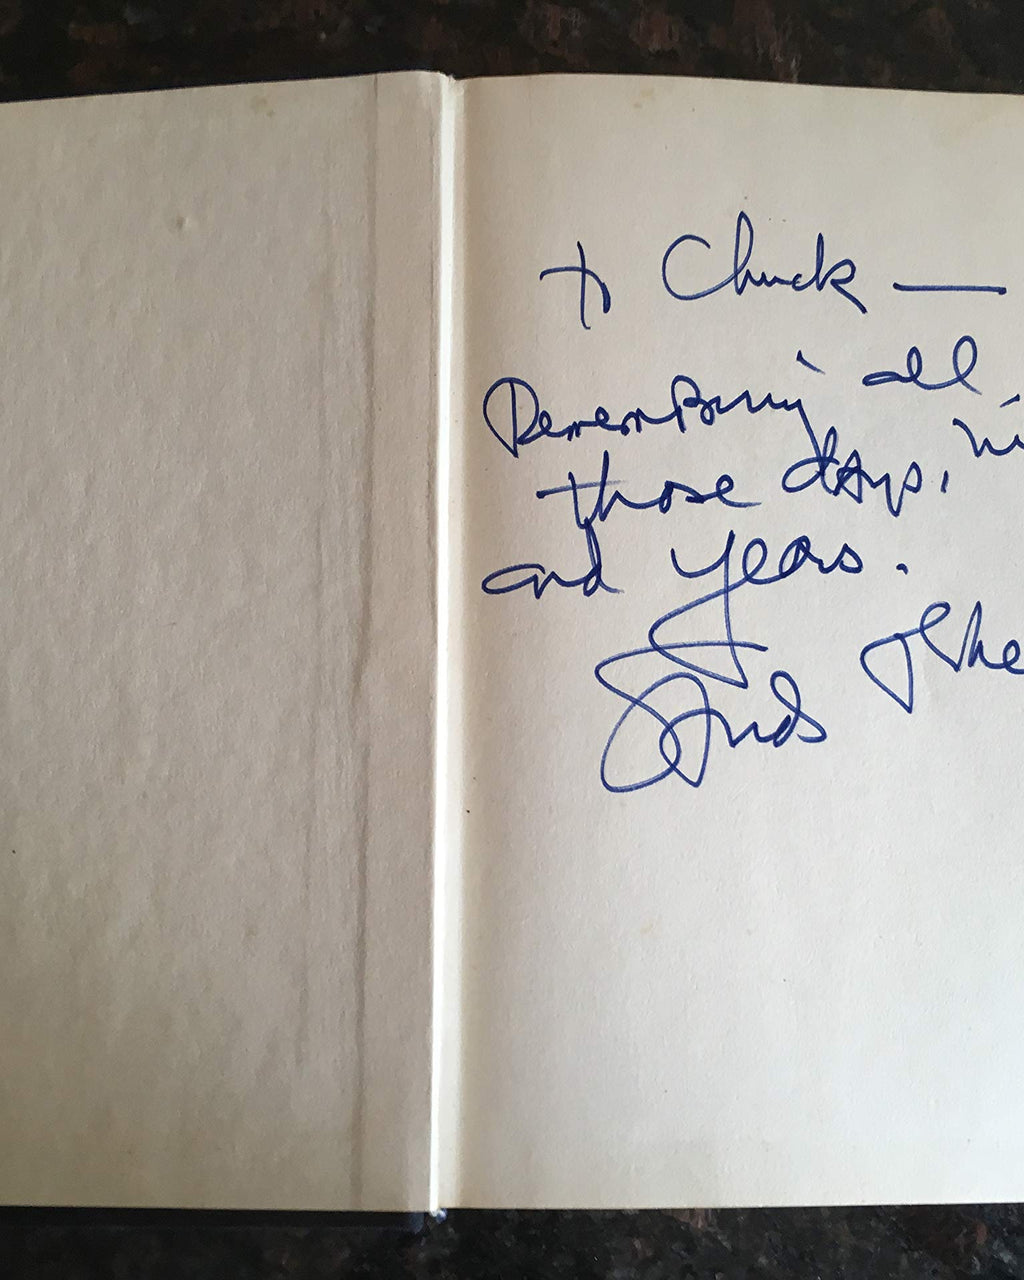 to Chuck —
Remembering all
those days, ni
and years.
Studs